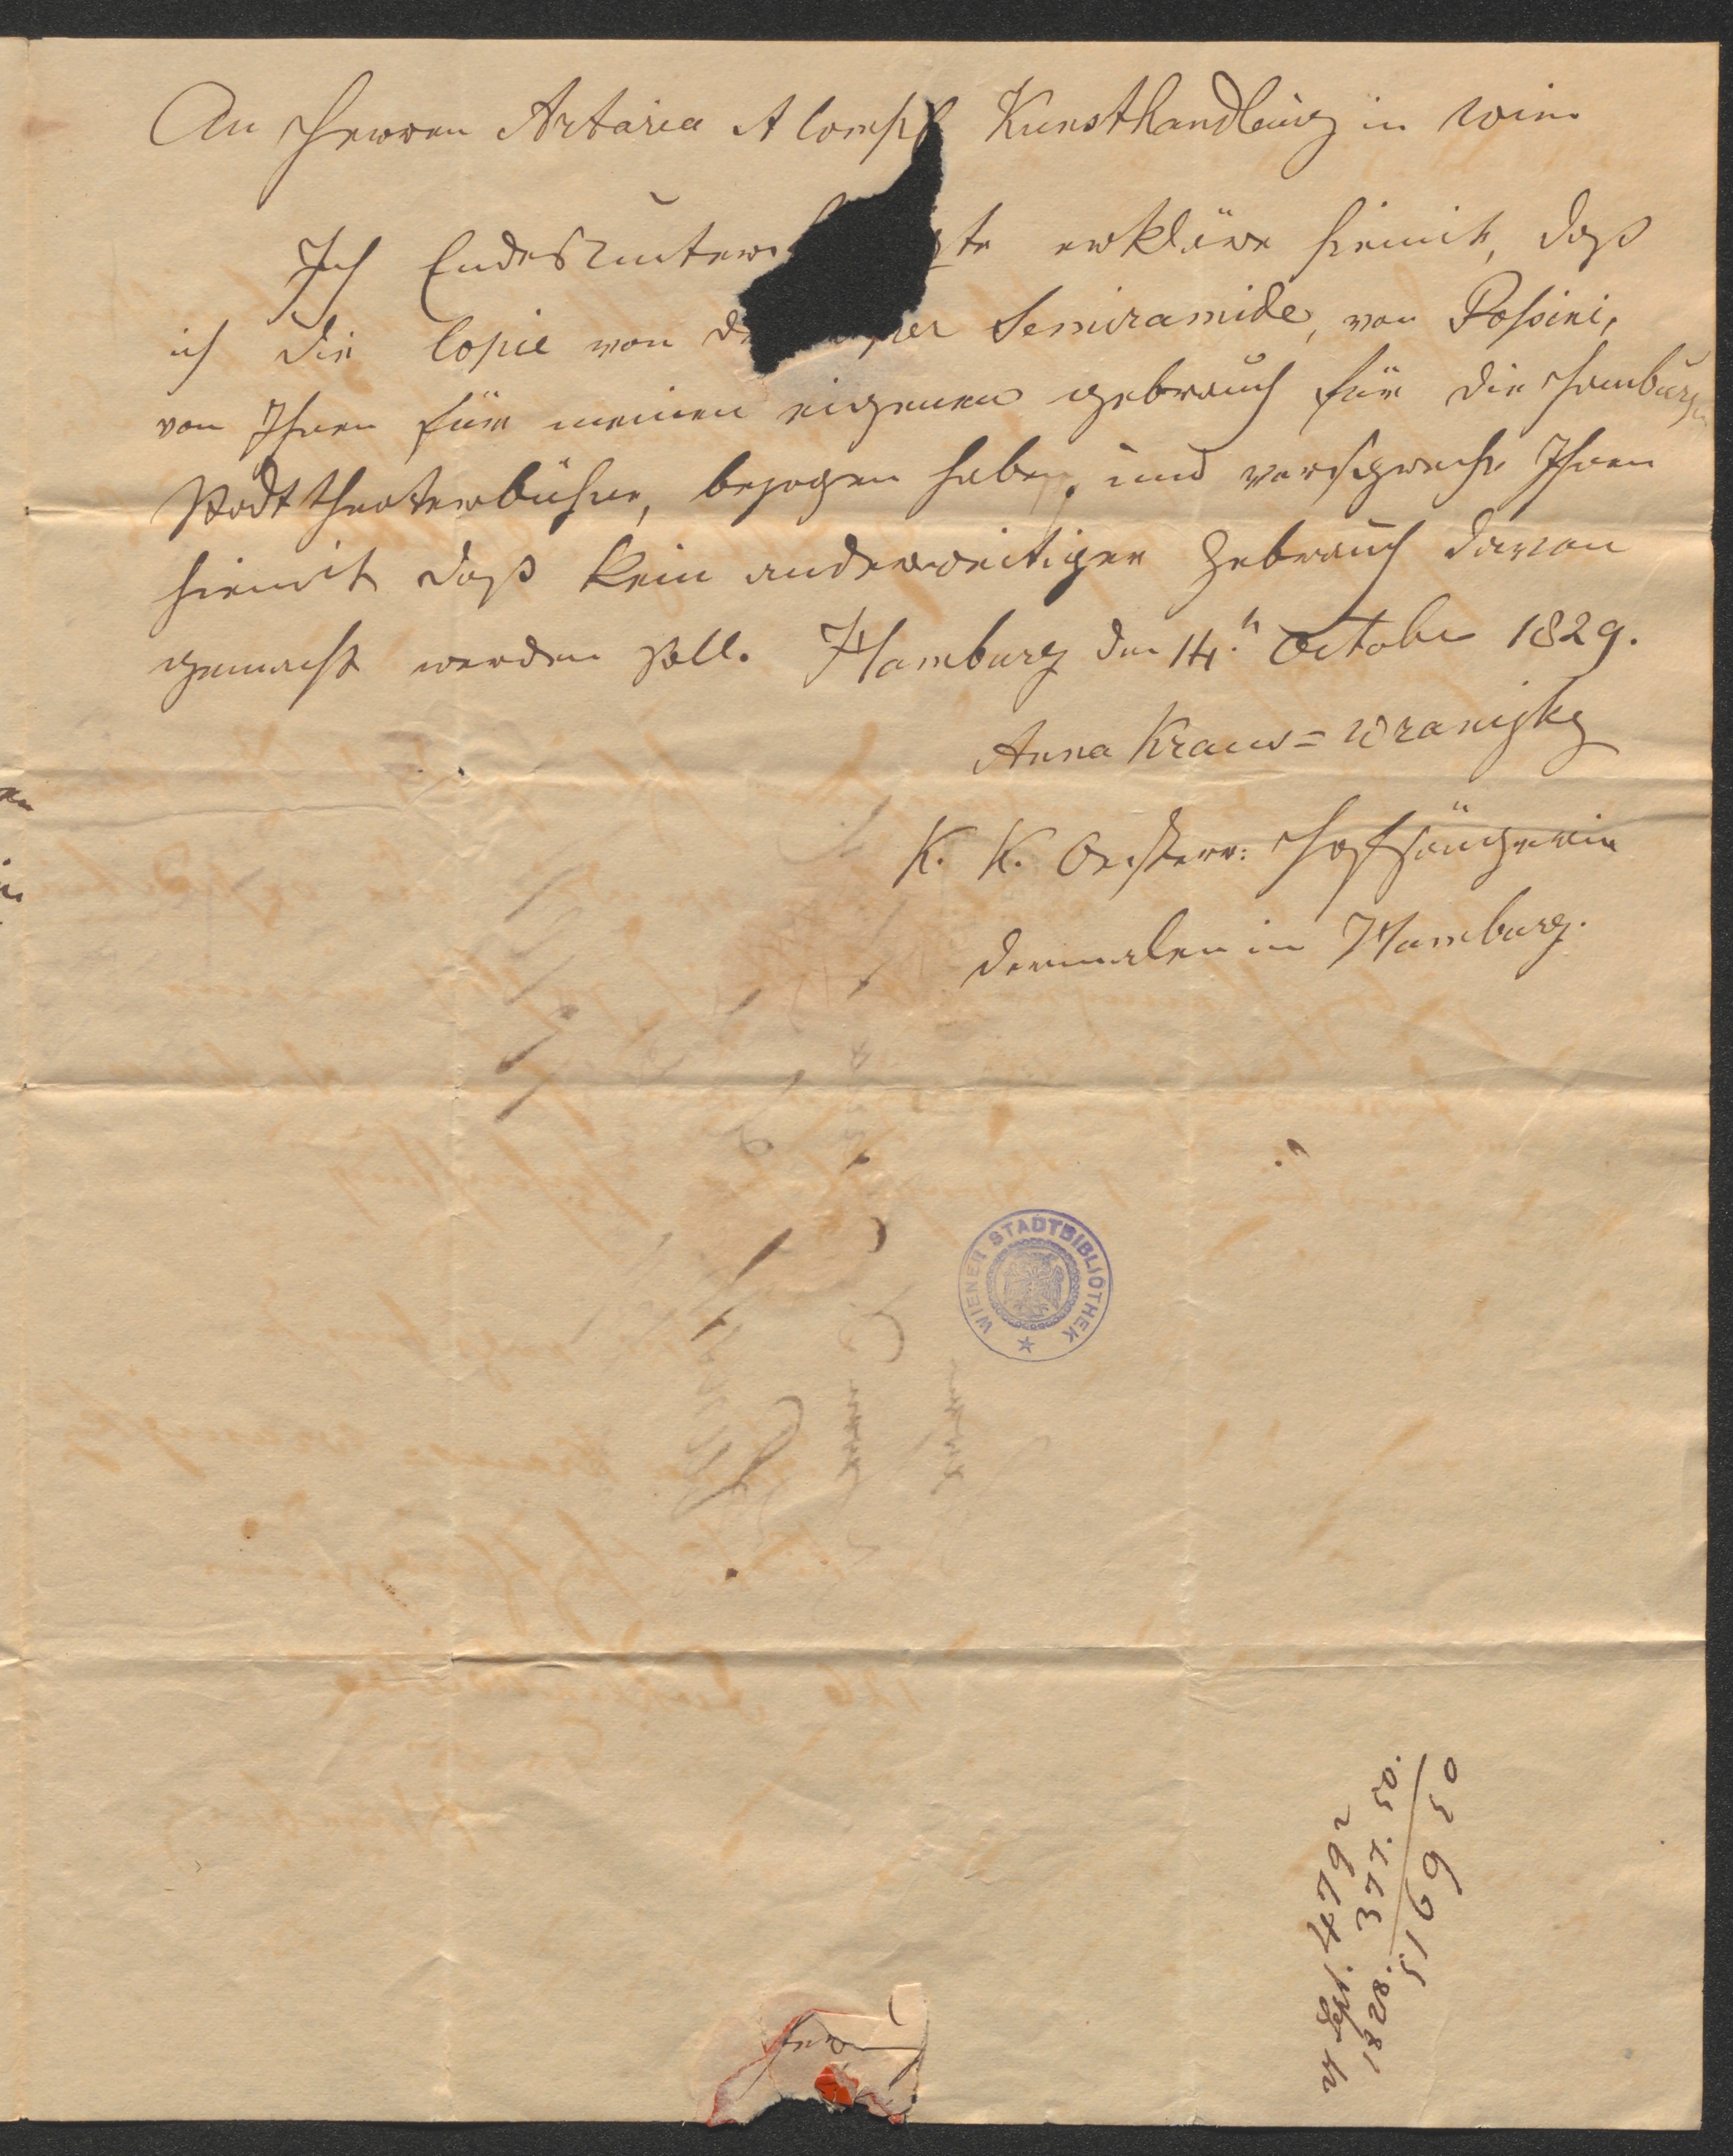 An Herren Artaria & Comp Kunsthandlung in Wien
Ich Endesunter te erkläre hiemit, daß
ich die Copie von d per Semiramide, von Roßini,
von Ihnen für meinen eigenen gebrauch für die Hamburger
Stadttheaterbühne, bezogen habe, und verspreche Ihnen
hiemit daß kein anderweitiger Gebrauch davon
gemacht werden soll. Hamburg den 14.n October 1829.
Anna Kraus=Wranizky
K. K. Oesterr: Hofsängerin
dermalen in Hamburg.
WIENER STADTBIBLIOTHEK
4792
1828. 377. 50.